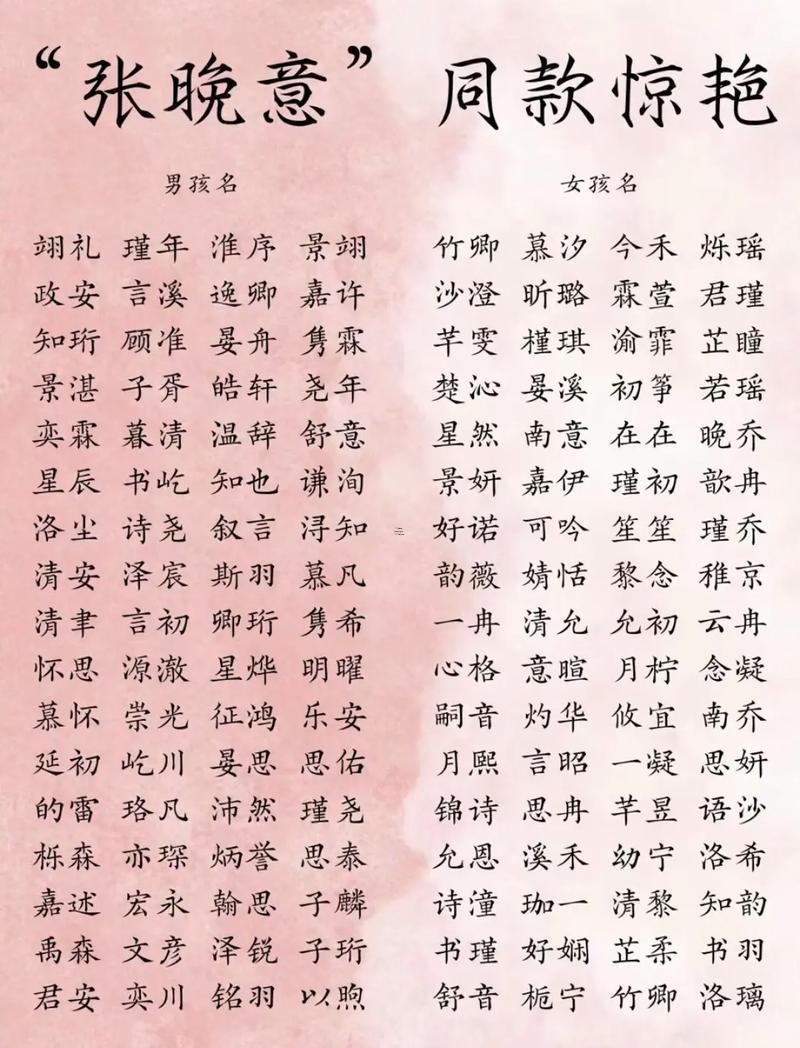 “张晚意” 同款惊艳
男孩名
翊礼 瑾年 淮序 景翊
政安 言溪 逸卿 嘉许
知珩 顾准 晏舟 隽霖
景湛 子胥 皓轩 尧年
奕霖 暮清 温辞 舒意
星辰 书屹 知也 谦洵
洛尘 诗尧 叙言 浔知
清安 泽宸 斯羽 慕凡
清聿 言初 卿珩 隽希
怀思 源澈 星烨 明曜
慕怀 崇光 征鸿 乐安
延初 屹川 晏思 思佑
的雷 珞凡 沛然 瑾尧
栎森 亦琛 炳誉 思泰
嘉述 宏永 翰思 子麟
禹森 文彦 泽锐 子珩
君安 奕川 铭羽 以煦
女孩名
竹卿 慕汐 今禾 烁瑶
沙澄 昕璐 霖萱 君瑾
芊雯 槿琪 渝霏 芷瞳
楚沁 晏溪 初筝 若瑶
星然 南意 在在 晚乔
景妍 嘉伊 瑾初 歆冉
好诺 可吟 笙笙 瑾乔
韵薇 婧恬 黎念 稚京
一冉 清允 允初 云冉
心格 意暄 月柠 念凝
嗣音 灼华 攸宜 南乔
月熙 言昭 一凝 思妍
锦诗 思冉 芊昱 语沙
允恩 溪禾 幼宁 洛希
诗潼 珈一 清黎 知韵
书瑾 好娴 芷柔 书羽
舒音 栀宁 竹卿 洛璃